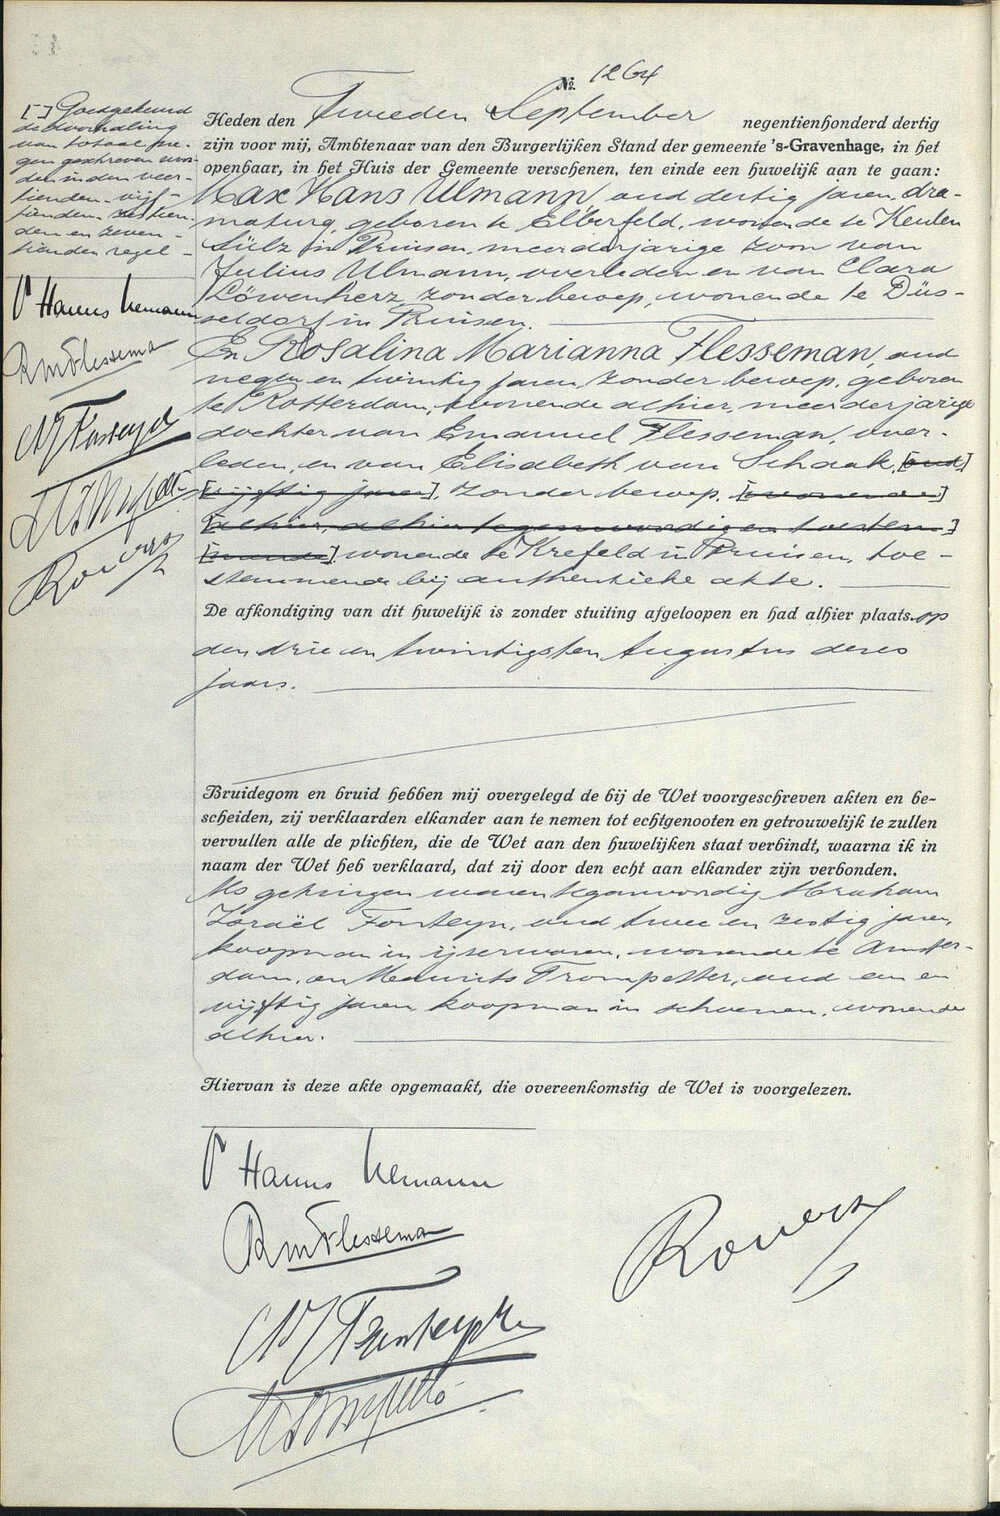 № 1264
Heden den Tweeden September negentienhonderd dertig
zijn voor mij, Ambtenaar van den Burgerlijken Stand der gemeente 's-Gravenhage, in het
openbaar, in het Huis der Gemeente verschenen, ten einde een huwelijk aan te gaan:
Max Hans Ulmann, oud dertig jaren, dra-
maturg, geboren te Elberfeld, wonende te Keulen
Sülz in Pruisen, meerderjarige zoon van
Julius Ulmann, overleden en van Clara
Löwenherz, zonder beroep, wonende te Düs-
seldorf in Pruisen.
En Rosalina Marianna Flesseman, oud
negen en twintig jaren, zonder beroep, geboren
te Rotterdam, wonende alhier, meerderjarige
dochter van Emanuel Flesseman, over-
leden, en van Elisabeth van Schaak, [oud]
[vijftig jaren], zonder beroep, [wonende]
[alhier, alhier tegenwoordig en toestem-]
[mende] wonende te Krefeld in Pruisen, toe-
stemmende bij authentieke akte.
De afkondiging van dit huwelijk is zonder stuiting afgeloopen en had alhier plaats op
den drie en twintigsten Augustus dezes
jaars.
Bruidegom en bruid hebben mij overgelegd de bij de Wet voorgeschreven akten en be-
scheiden, zij verklaarden elkander aan te nemen tot echtgenooten en getrouwelijk te zullen
vervullen alle de plichten, die de Wet aan den huwelijken staat verbindt, waarna ik in
naam der Wet heb verklaard, dat zij door den echt aan elkander zijn verbonden.
Als getuigen waren tegenwoordig Abraham
Israël Fonteyn, oud twee en zestig jaren,
koopman in ijzerwaren, wonende te Amster-
dam, en Maurits Trompetter, oud een en
vijftig jaren koopman in schoenen, wonende
alhier.
Hiervan is deze akte opgemaakt, die overeenkomstig de Wet is voorgelezen.
[ ] Goedgekeurd
de doorhaling
van totaal
gen geschreven wor-
den in den veer-
tienden, vijf-
tienden, zestien-
den en zeven-
tienden regel
Hanns Ulmann
RMFlesseman
AJFonteyn
MTrompetter
Hanns Ulmann
RMFlesseman
AJFonteyn
MTrompetter